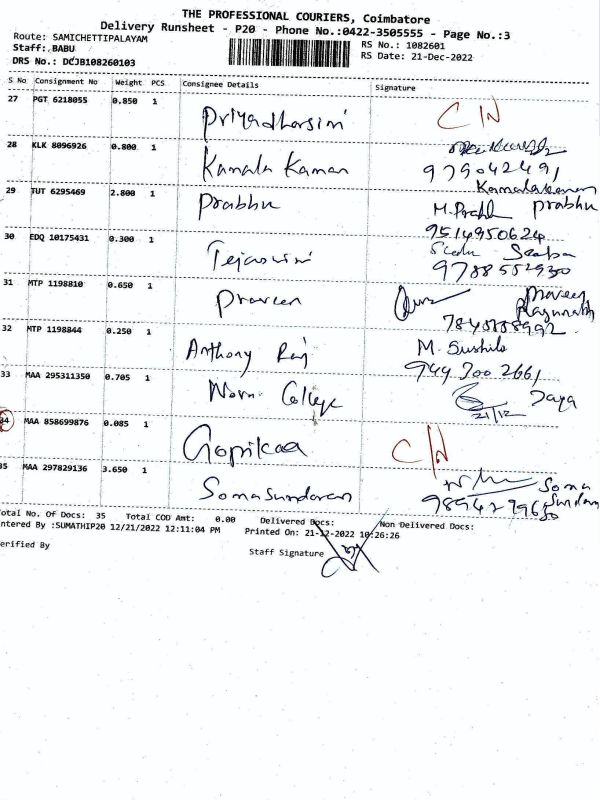 THE PROFESSIONAL COURIERS, Coimbatore
Delivery Runsheet - P20 - Phone No.:0422-3505555 - Page No.:3
Route: SAMICHETTIPALAYAM
Staff: BABU
RS No.: 1082601
DRS No.: DCJB108260103
RS Date: 21-Dec-2022
S No Consignment No Weight PCS Consignee Details Signature
27 PGT 6218055 0.850 1 Priyadharsini C/N
28 KLK 8096926 0.800 1 Kamala Kannan 975042491
Kamalakannan
29 TUT 6295469 2.800 1 Prabhu M. Prabhu prabhu
9514950624
30 EDQ 10175431 0.300 1 Tejaswini
9788552930
31 MTP 1198810 0.650 1 Praveen praveen
32 MTP 1198844 0.250 1 Anthony Raj M. Sushila
944 300 2661
33 MAA 295311350 0.705 1 College Jaya
21/12
34 MAA 858699876 0.085 1 Gopikaa C/N
35 MAA 297829136 3.650 1 Somasundaran Soma
Sundaram
Total No. Of Docs: 35 Total COD Amt: 0.00 Delivered Docs: Non Delivered Docs:
Entered By :SUMATHIP20 12/21/2022 12:11:04 PM Printed On: 21-12-2022 10:26:26
Verified By Staff Signature